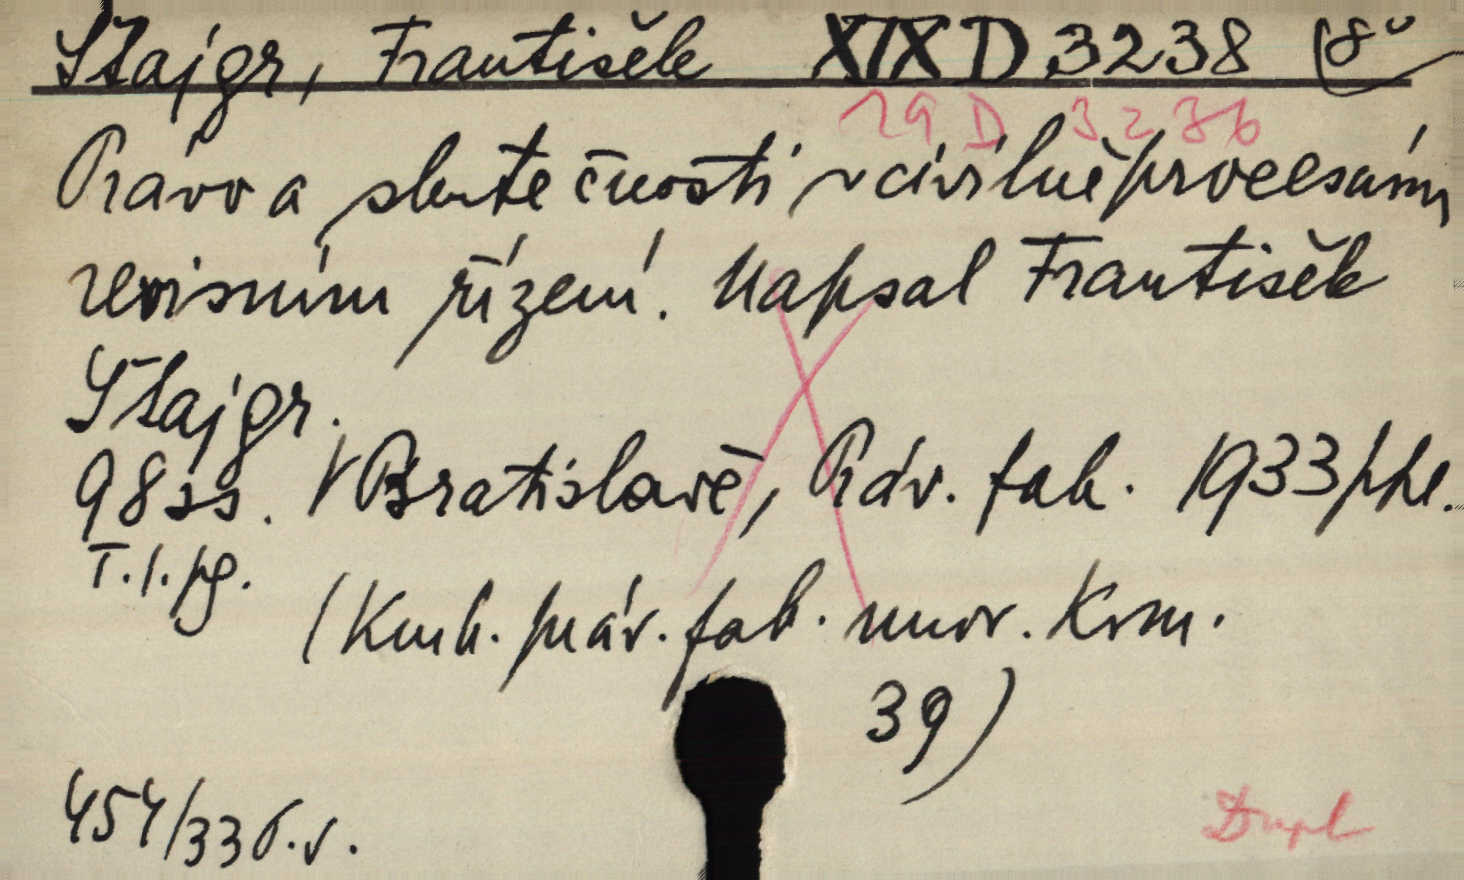 Štajgr, František XIX D 3238 (8°
19 D 3236
Právo a skutečnosti v civilněprocesním
revisním řízení. Napsal František
Štajgr.
98 ss. V Bratislavě, Práv. fak. 1933 ppl.
T. 1. pg.
(Knih. práv. fak. univ. Kom.
39)
454/33 b. v.
Dupl